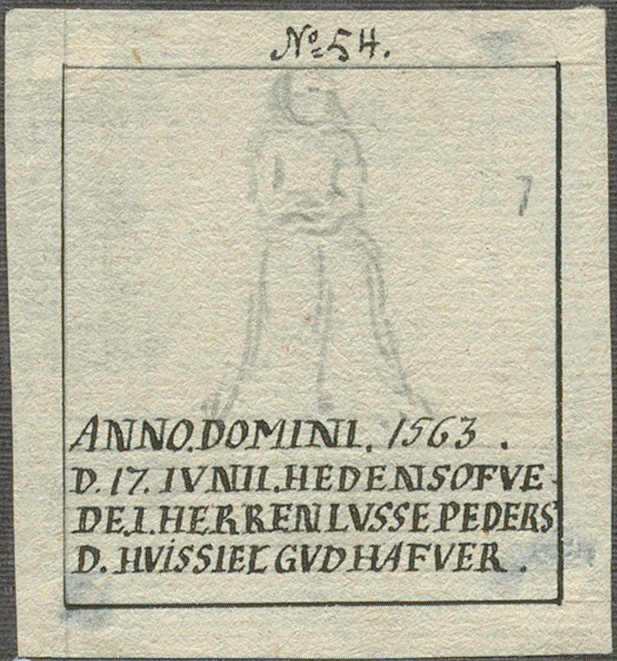 No 54.
7
ANNO.DOMINI. 1563 .
D. 17. IVNII.HEDENSOFVE
DE.I.HERRENLVSSE PEDERS
D. HVISSIEL GVD HAFVER .